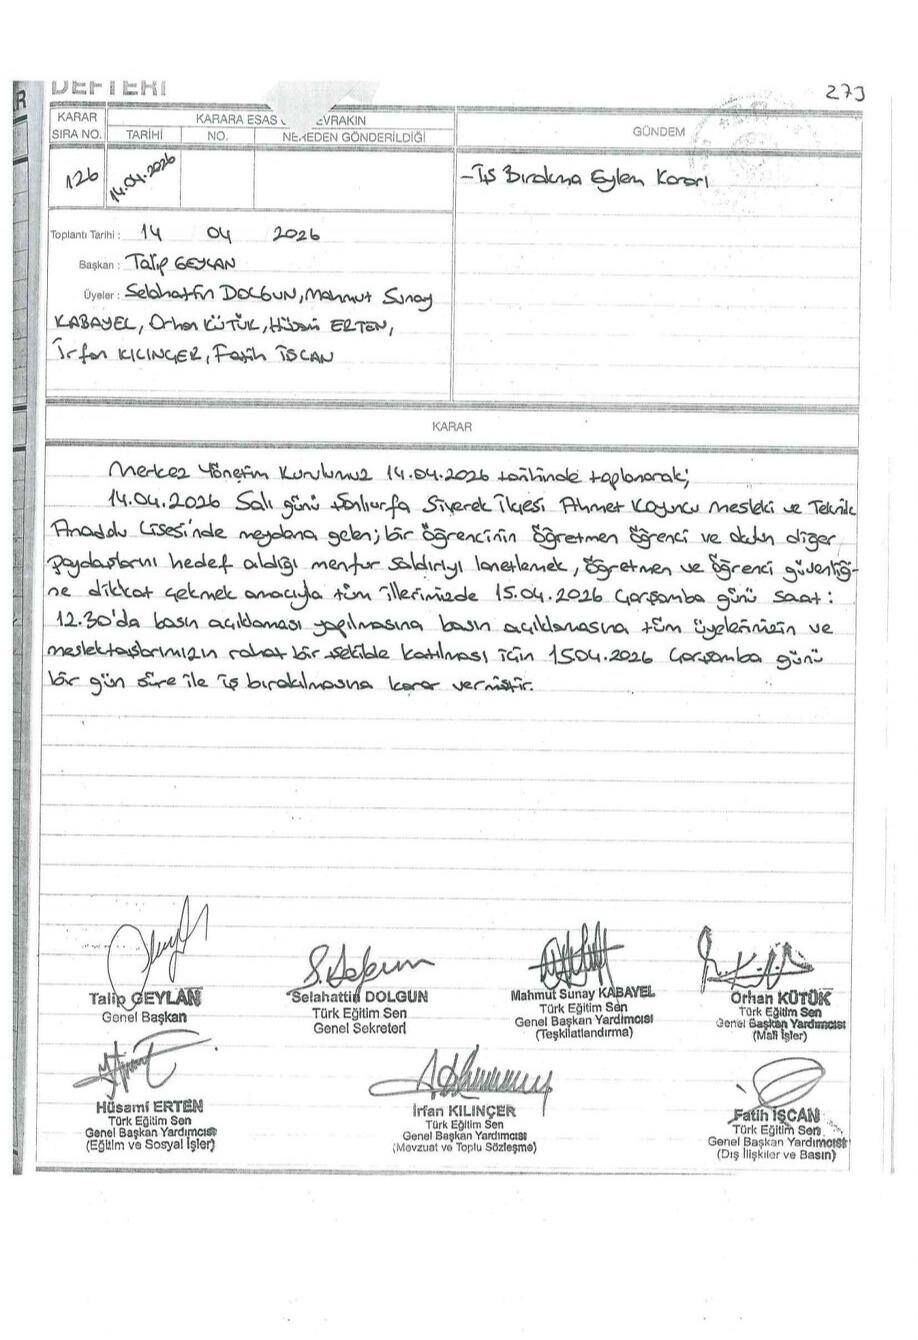 DEFTERİ
273
KARAR SIRA NO.
KARARA ESAS EVRAKIN
TARİHİ NO. NEREDEN GÖNDERİLDİĞİ
GÜNDEM
126 14.04.2026
-İş Bırakma Eylem Kararı
Toplantı Tarihi : 14 04 2026
Başkan : Talip GEYLAN
Üyeler : Selahattin DOLGUN, Mahmut Sunay
KABAYEL, Orhan KÜTÜK, Hüsami ERTEN,
İrfan KILINÇER, Fatih İSCAN
KARAR
Merkez Yönetim Kurulumuz 14.04.2026 tarihinde toplanarak;
14.04.2026 Salı günü Şanlıurfa Siverek İlçesi Ahmet Koyuncu Mesleki ve Teknik
Anadolu Lisesi'nde meydana gelen; bir öğrencinin öğretmen öğrenci ve okulun diğer
paydaşlarını hedef aldığı menfur saldırıyı lanetlemek, öğretmen ve öğrenci güvenliği-
ne dikkat çekmek amacıyla tüm illerimizde 15.04.2026 Çarşamba günü saat:
12.30'da basın açıklaması yapılmasına basın açıklamasına tüm üyelerimizin ve
meslektaşlarımızın rahat bir şekilde katılması için 15.04.2026 Çarşamba günü
bir gün süre ile iş bırakılmasına karar vermiştir.
Talip GEYLAN
Genel Başkan
Selahattin DOLGUN
Türk Eğitim Sen
Genel Sekreteri
Mahmut Sunay KABAYEL
Türk Eğitim Sen
Genel Başkan Yardımcısı
(Teşkilatlandırma)
Orhan KÜTÜK
Türk Eğitim Sen
Genel Başkan Yardımcısı
(Mali İşler)
Hüsami ERTEN
Türk Eğitim Sen
Genel Başkan Yardımcısı
(Eğitim ve Sosyal İşler)
İrfan KILINÇER
Türk Eğitim Sen
Genel Başkan Yardımcısı
(Mevzuat ve Toplu Sözleşme)
Fatih İSCAN
Türk Eğitim Sen
Genel Başkan Yardımcısı
(Dış İlişkiler ve Basın)